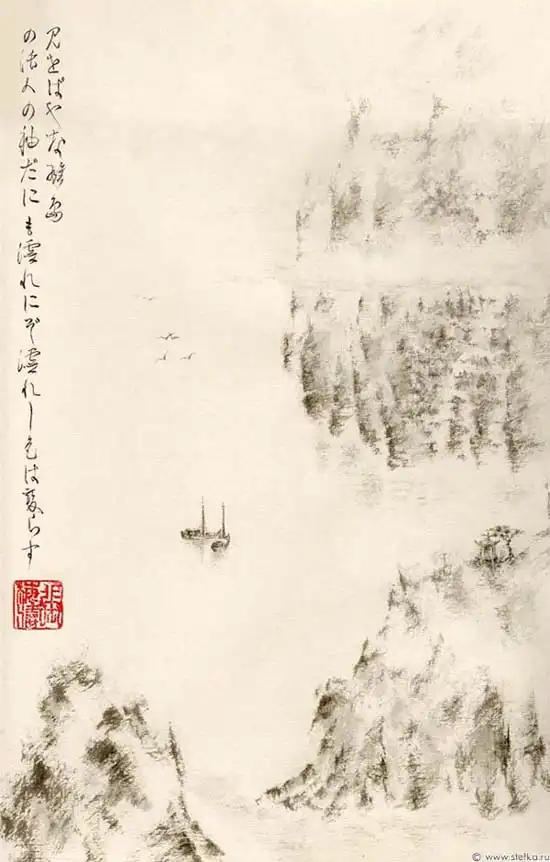 見せばやな雄島
の海人の袖だにも濡れにぞ濡れし色は変らず